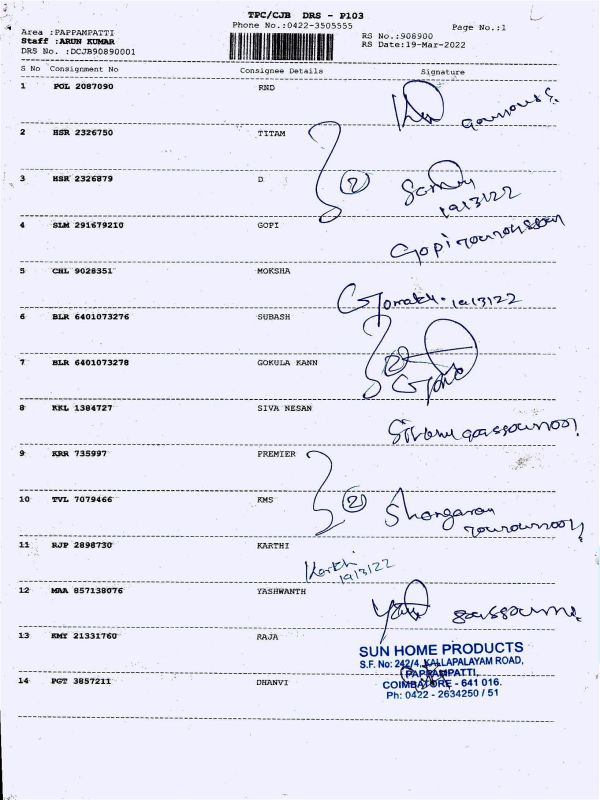 TPC/CJB DRS - P103
Phone No.:0422-3505555
Page No.:1
Area :PAPPAMPATTI
Staff :ARUN KUMAR
DRS No. :DCJB90890001
RS No.:908900
RS Date:19-Mar-2022
S No Consignment No Consignee Details Signature
1 POL 2087090 RND
2 HSR 2326750 TITAM
3 HSR 2326879 D
2
19/3/22
4 SLM 291679210 GOPI
Gopi
5 CHL 9028351 MOKSHA
19/3/22
6 BLR 6401073276 SUBASH
7 BLR 6401073278 GOKULA KANN
2
8 KKL 1384727 SIVA NESAN
9 KRR 735997 PREMIER
10 TVL 7079466 KMS
2
11 RJP 2898730 KARTHI
Karthi
19/3/22
12 MAA 857138076 YASHWANTH
13 KMY 21331760 RAJA
SUN HOME PRODUCTS
S.F. No: 242/4, KALLAPALAYAM ROAD,
PAPPAMPATTI,
COIMBATORE - 641 016.
Ph: 0422 - 2634250 / 51
14 PGT 3857211 DHANVI